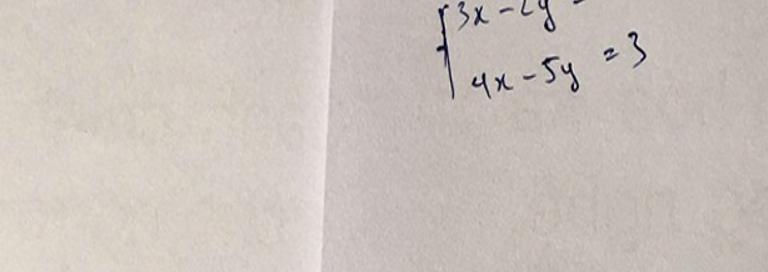 3x - 2y =
4x - 5y = 3